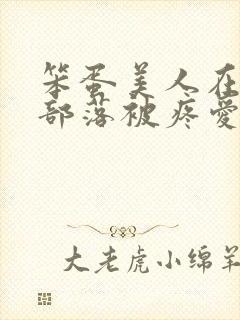 笨蛋美人在
部落被疼爱
大老虎小绵羊